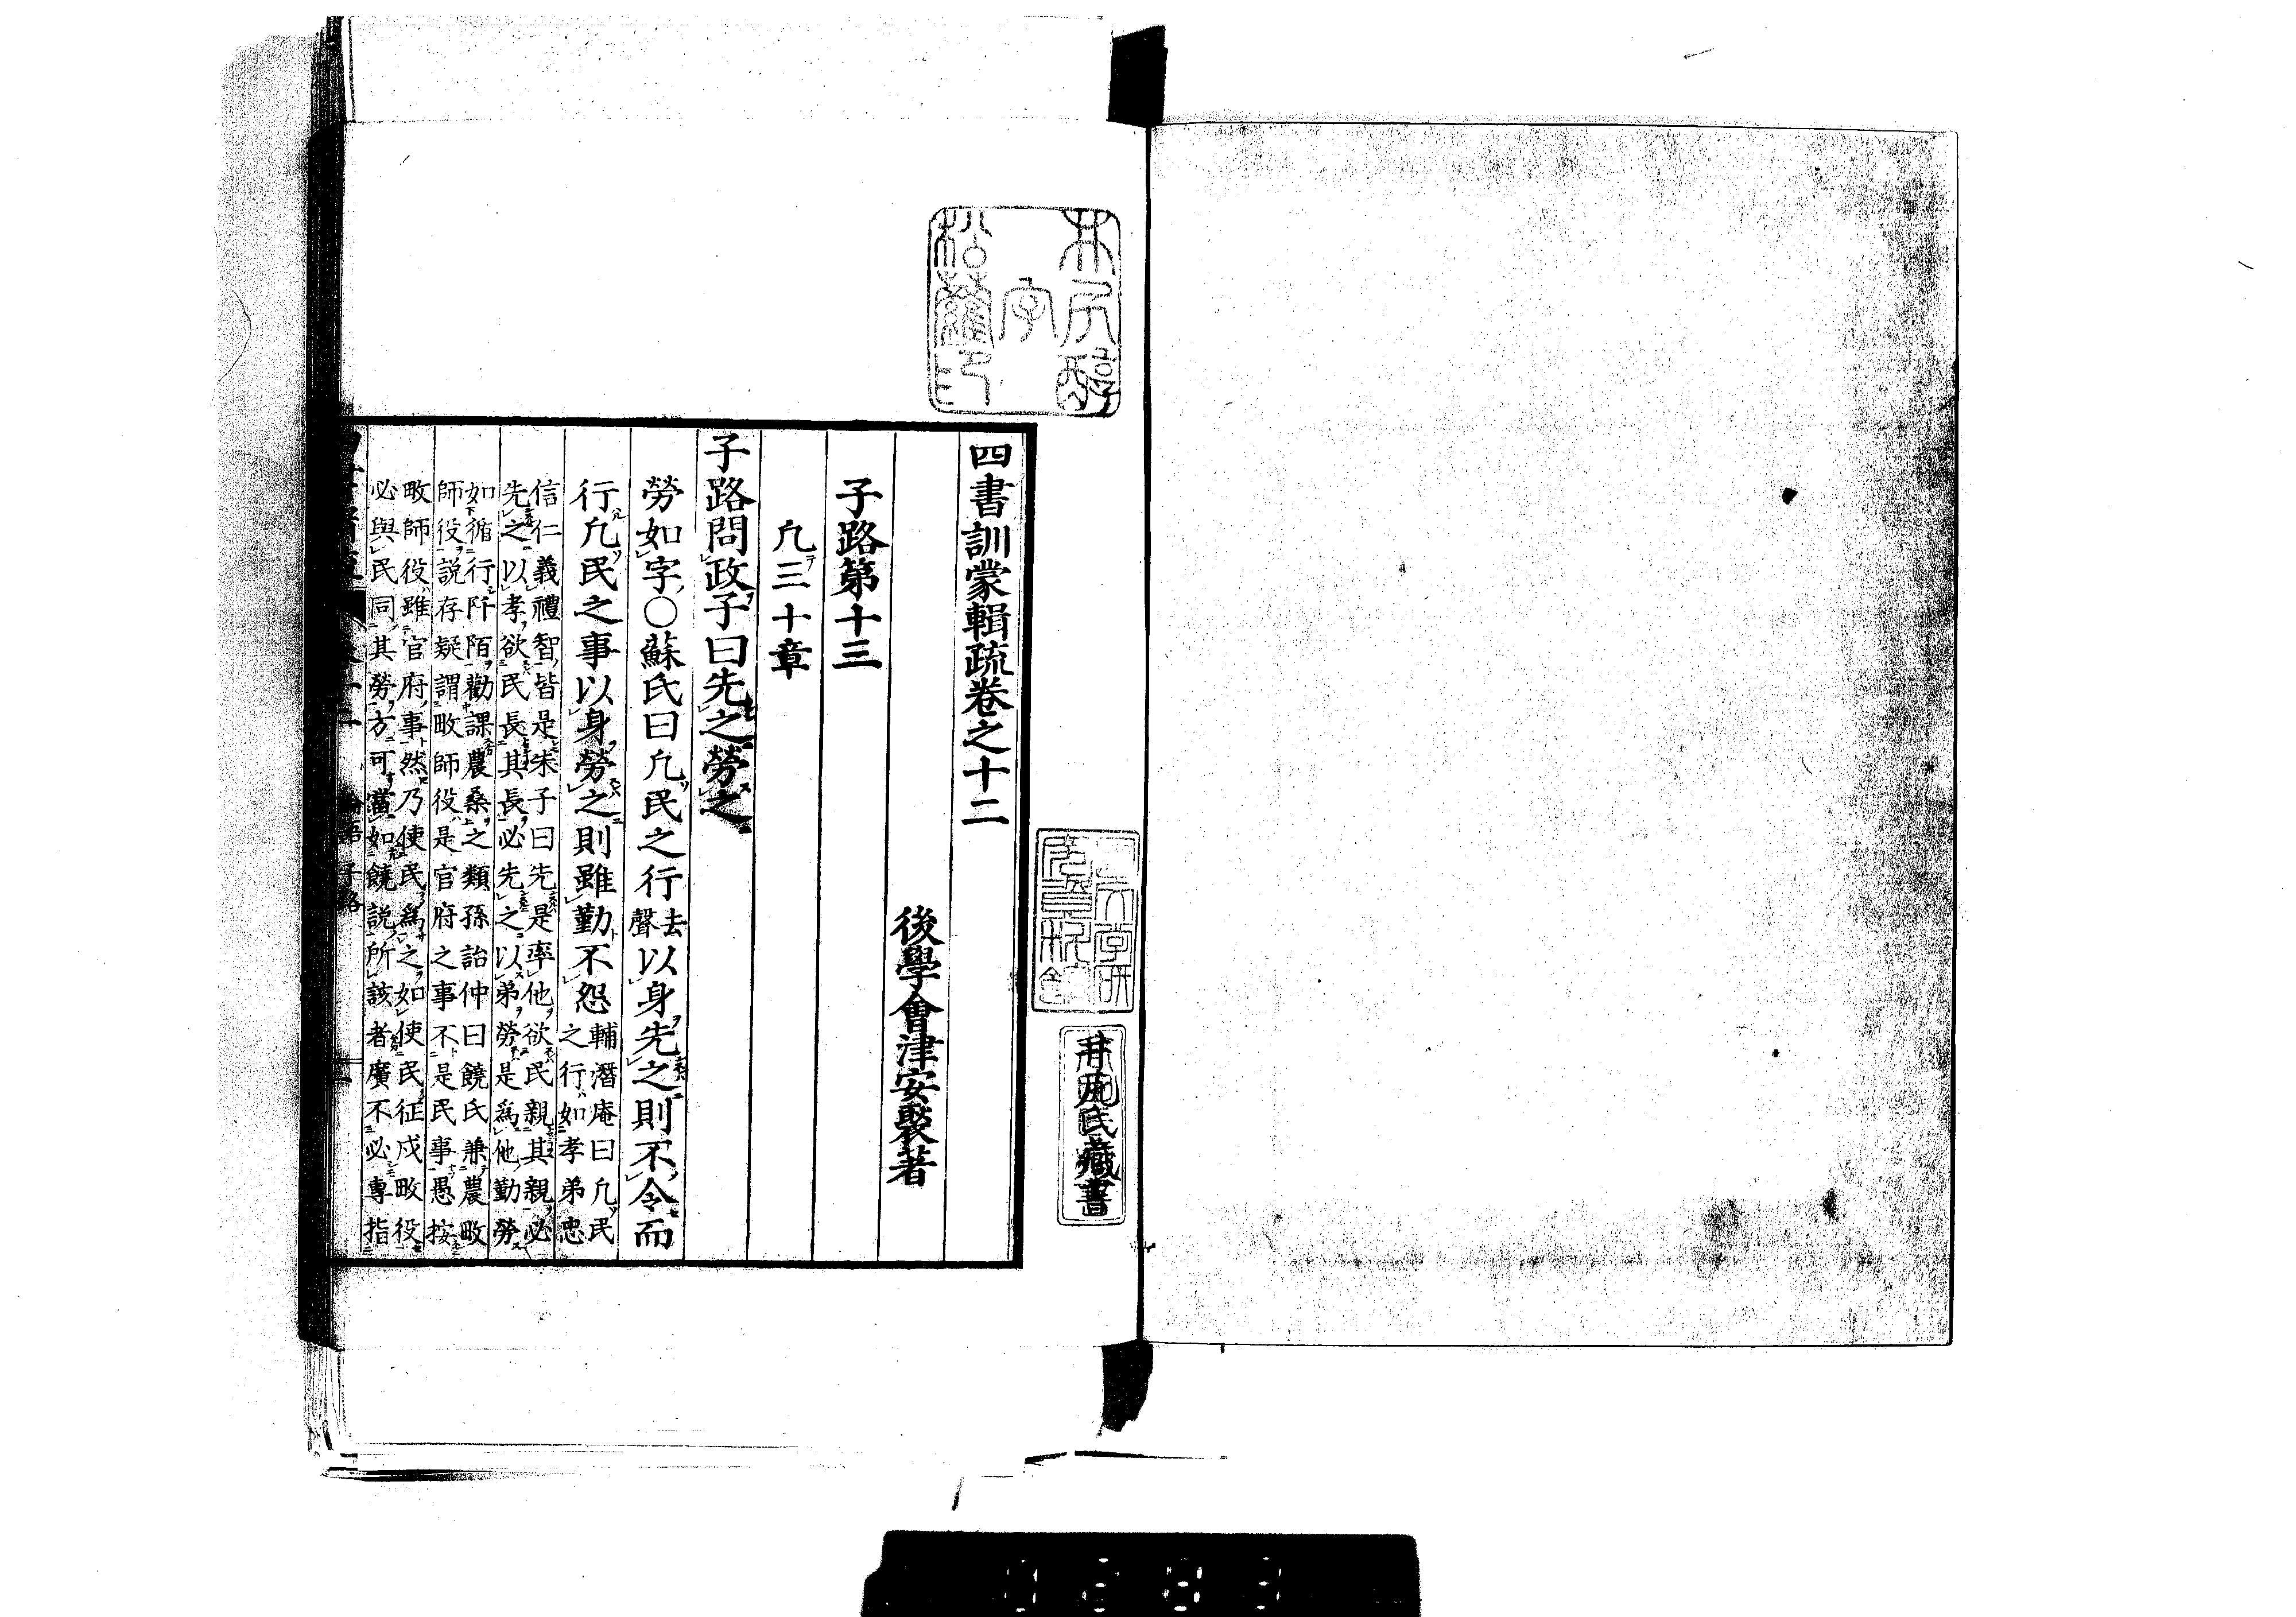 四書訓蒙輯疏卷之十二
後學會津安褧著
子路第十三
凢三十章
子路問政子曰先之勞之
勞如字○蘇氏曰凢民之行去聲以身先之則不令而
行凢民之事以身勞之則雖勤不怨輔潛庵曰凢民之行如孝弟忠
信仁義禮智皆是朱子曰先是率他欲民親其親必
先之以孝欲民長其長必先之以弟勞是爲他勤勞
如循行阡陌勸課農桑之類孫詒仲曰饒氏兼農畋
師役説存疑謂畋師役是官府之事不是民事愚按
畋師役雖官府事然乃使民爲之如使民征戍畋役
必與民同其勞方可當如饒説所該者廣不必專指
論語 子路
井子醇字松蘿印
井凡氏藏書